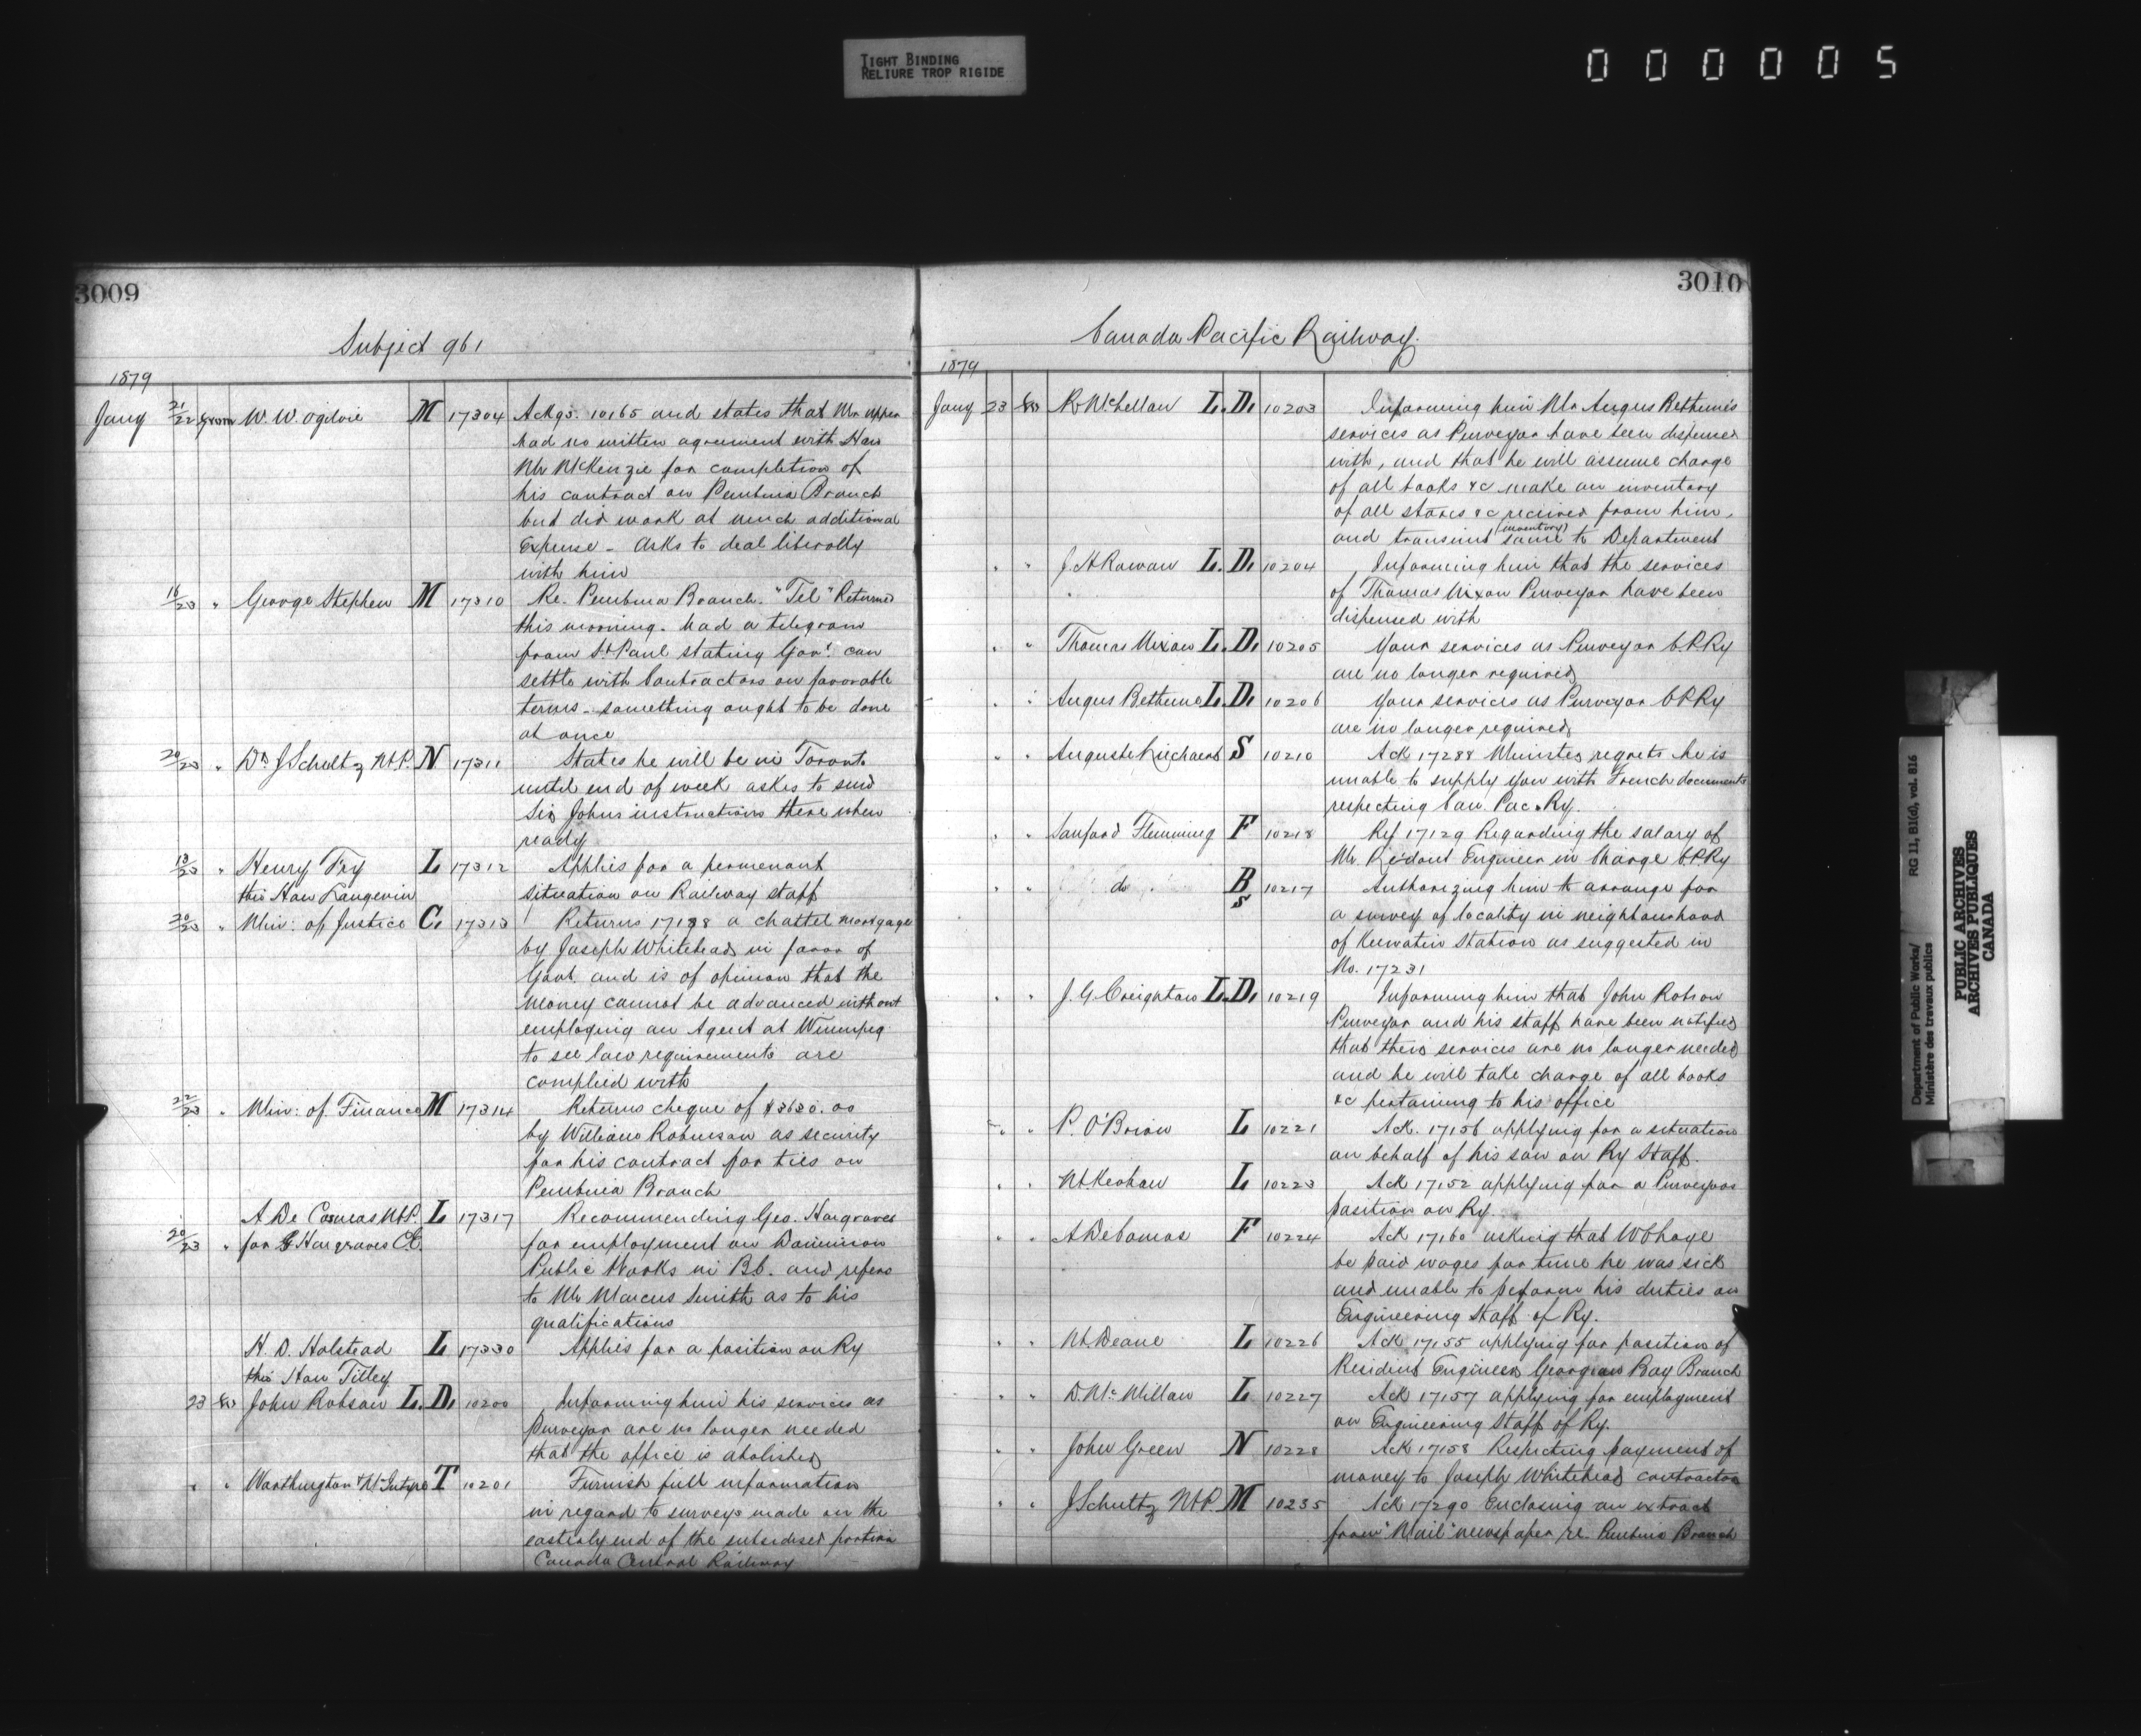 TIGHT BINDING
RELIURE TROP RIGIDE
000005
3009
Subject 961
1879
Jany 21/22 from W. W. Ogilvie M 17304 Ackgs. 10165 and states that Mr Upper
had no written agreement with Hon
Mr McKenzie for completion of
his contract on Pembina Branch
but did work at much additional
Expense - Asks to deal liberally
with him
16/23 " George Stephen M 17310 Re. Pembina Branch. "Tel" Returned
this morning. Had a telegram
from St Paul stating Gov't. can
settle with Contractors on favorable
terms - something ought to be done
at once
20/23 " Dr J Schultz M.P. N 17311 States he will be in Toronto
until end of week askes to send
Sir Johns instructions there when
ready
13/23 " Henry Fry L 17312 Applies for a permenant
thro Hon Langevin situation on Railway staff
20/23 " Min: of Justice C. 17313 Returns 17198 a chattel mortgage
by Joseph Whitehead in favor of
Govt. and is of opinion that the
money cannot be advanced without
employing an Agent at Winnipeg
to see law requirements are
complied with
22/23 " Min: of Finance M 17314 Returns cheque of $3630. as
by William Robinson as security
for his contract for ties on
Pembina Branch
A De Cosmos M.P. L 17317 Recommending Geo. Hargraves
20/23 " for G Hargraves C.E. for employment on Dominion
Public Works in B.C. and refers
to Mr Marcus Smith as to his
qualifications
H. D. Holstead L 17330 Applies for a position on Ry
thro Hon Tilley
23 to John Robson L.D. 10200 Informing him his services as
purveyor are no longer needed
that the office is abolished
" " Worthington & McIntyre T 10201 Furnish full information
in regard to surveys made on the
easterly end of the subsidised portion
Canada Central Railway
3010
Canada Pacific Railway.
1879
Jany 23 to R McLellan L.D. 10203 Informing him Mr Angus Bethune's
services as Purveyor have been dispensed
with, and that he will assume charge
of all books &c make an inventory
of all stores &c received from him,
and transmit same (inventory) to Department
" " J. H Rowan L.D. 10204 Informing him that the services
of Thomas Nixon Purveyor have been
dispensed with
" " Thomas Nixon L.D. 10205 Your services as Purveyor C.P.Ry
are no longer required
" " Angus Bethune L.D. 10206 Your services as Purveyor C.P.Ry
are no longer required
" " Auguste S 10210 Ack 17288 Minister regrets he is
unable to supply you with French documents
respecting Can. Pac. Ry.
" " Sanford Flemming F 10218 Ref 17129 Regarding the salary of
Mr. Engineer in Charge C.P.Ry
" " do B S 10217 Authorizing him to arrange for
a survey of locality in neighbourhood
of Keewatin Station as suggested in
No. 17231
" " J. G. Creighton L.D. 10219 Informing him that John Robson
Purveyor and his staff have been notified
that their services are no longer needed
and he will take charge of all books
&c pertaining to his office
" " P. O'Brien L 10221 Ack. 17156 applying for a situation
on behalf of his son on Ry Staff.
" " M. Keohan L 10223 Ack 17152 applying for a Purveyors
position on Ry.
" " A DeCosmos F 10224 Ack 17160 asking that
be paid wages for time he was sick
and unable to peform his duties on
Engineering Staff of Ry.
" " M. Deane L 10226 Ack 17155 applying for position of
Resident Engineer Georgian Bay Branch
" " D. McMillan L 10227 Ack 17157 applying for employment
on Engineering Staff of Ry.
" " John Green N 10228 Ack 17158 Respecting payment of
money to Joseph Whitehead contractor
" " J Schultz M.P. M 10235 Ack 17290 Enclosing an extract
from "Mail" newspaper re. Pembina Branch
Department of Public Works/ RG 11, B1(d), vol. 816
Ministère des travaux publics
PUBLIC ARCHIVES
ARCHIVES PUBLIQUES
CANADA